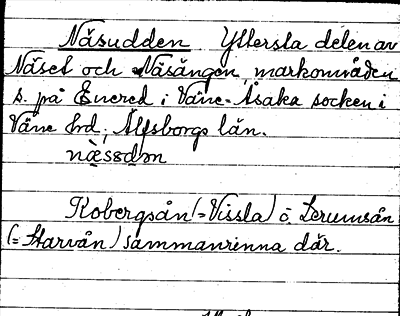 Näsudden Yttersta delen av
Näset och Näsängen, markområden
s. på Enered i Väne-Åsaka socken i
Väne hd, Älvsborgs län.
Kobergsån (=Vissla) o. Lerumsån
(=Starvån) sammanrinna där.